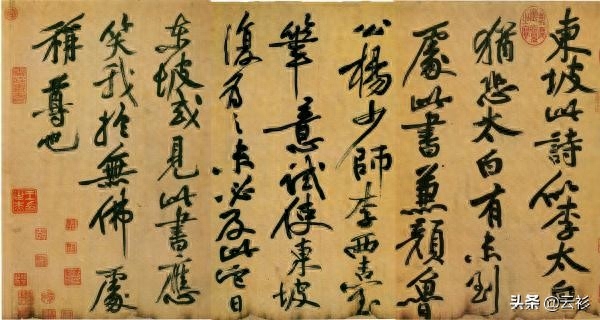 東坡此詩似李太白
猶恐太白有未到
處此書兼顏魯
公楊少師李西臺
筆意試使東坡
復為之未必及此它日
東坡或見此書應
笑我於無佛處
稱尊也
头条 @云衫